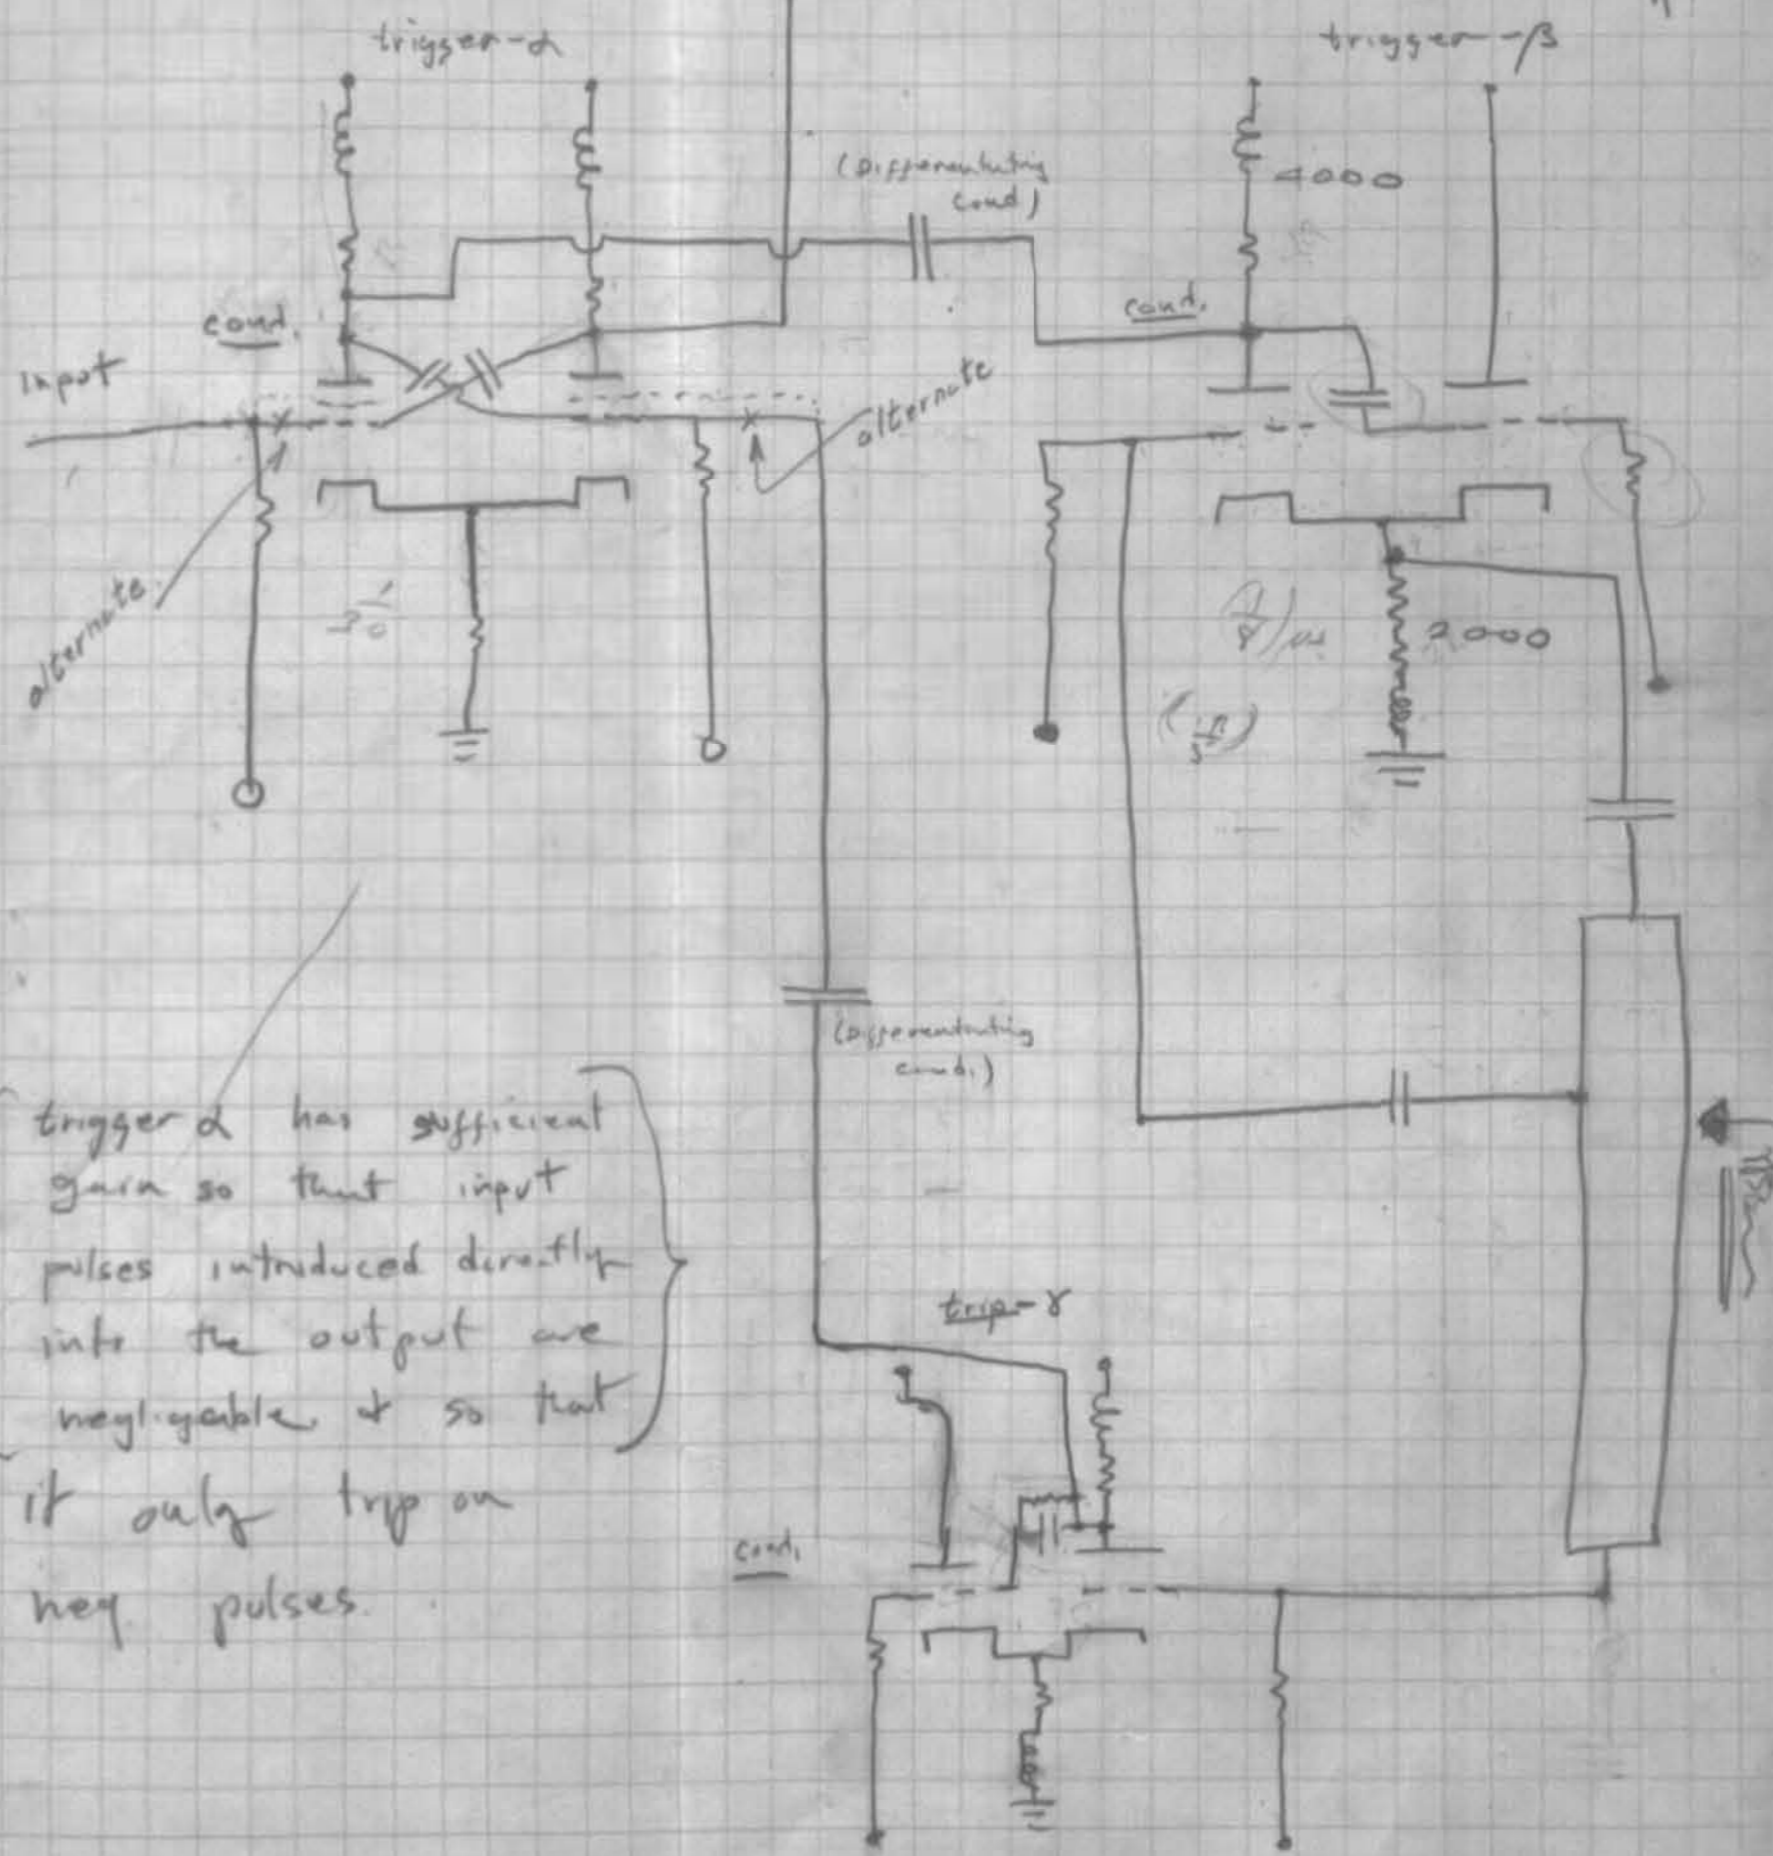 trigger-α
trigger-β
(Differentiating
cond)
4000
cond.
cond.
input
alternate
alternate
2000
(Differentiating
cond.)
trigger α has sufficient
gain so that input
pulses introduced directly
into the output are
negligeable & so that
it only trip on
neg pulses.
trip-γ
cond.